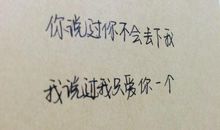 你说过你不会丢下我
我说过我只爱你一个